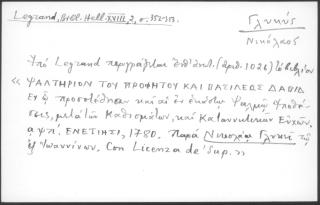 Legrand, Bibl. Hell. XVIII, 2, σ. 352-353.
Γλυκύς
Νικόλαος
Ὑπὸ Legrand περιγράφεται ὑπ' ἀριθ. (ἀριθ. 1026) τὸ βιβλίον
« ΨΑΛΤΗΡΙΟΝ ΤΟΥ ΠΡΟΦΗΤΟΥ ΚΑΙ ΒΑΣΙΛΕΩΣ ΔΑΒΙΔ
Ἐν ᾧ προσετέθησαν καὶ αἱ ἐν ἑκάστῳ Ψαλμῷ Ὑποθέ-
σεις, μετὰ τῶν Καθισμάτων, καὶ Κατανυκτικῶν Εὐχῶν.
αψπ'. ΕΝΕΤΙΗΣΙ, 1780. Παρὰ Νικολάῳ Γλυκεῖ τῷ
ἐξ Ἰωαννίνων. Con Licenza de' Sup. »